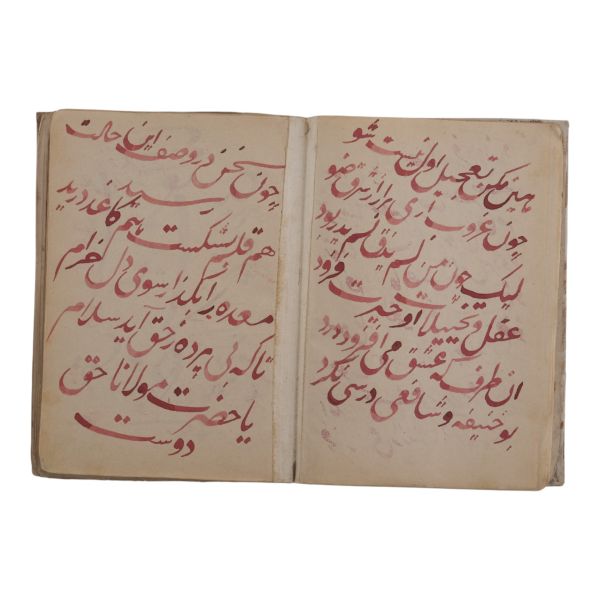 هین مکن تعجیل اول نیست شو
چون غروب آری برآ از شرق ضو
لیک چون من لم یذق لم یدر بود
عقل و تخییلات او حیرت فزود
آن طرف که عشق می افزود درد
بوحنیفه و شافعی درسی نکرد
چون سخن در وصف این حالت
رسید
هم قلم بشکست هم کاغذ درید
معده را بگذار سوی دل خرام
تا که بی پرده ز حق آید سلام
یا حضرت مولانا حق
دوست